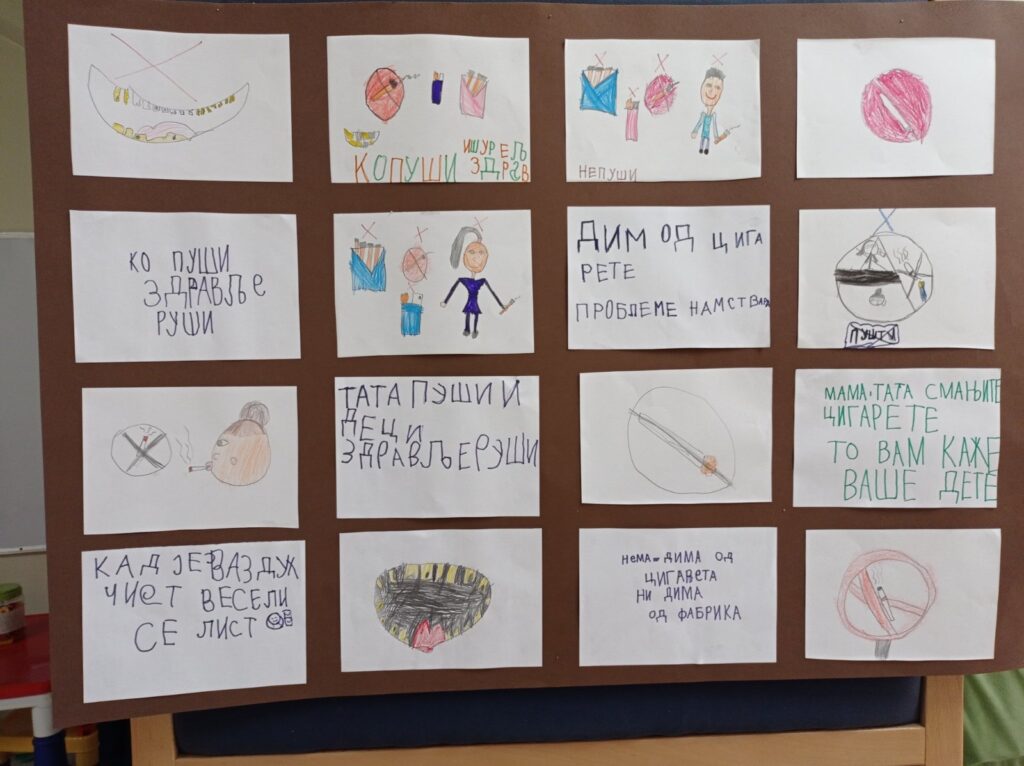 КОПУШИ
ИШУРЕЉ
ЗДРАВ
НЕПУШИ
КО ПУШИ
ЗДРАВЉЕ
РУШИ
ДИМ ОД ЦИГА
РЕТЕ
ПРОБЛЕМЕ НАМСТВАРА
ПУШТИ
ТАТА ПУШИ И
ДЕЦИ
ЗДРАВЉЕРУШИ
МАМА.ТАТА СМАЊИТЕ
ЦИГАРЕТЕ
ТО ВАМ КАЖЕ
ВАШЕ ДЕТЕ
КАД ЈЕ ВАЗДУХ
ЧИСТ ВЕСЕЛИ
СЕ ЛИСТ
НЕМА-ДИМА ОД
ЦИГАВЕТА
НИ ДИМА
ОД ФАБРИКА